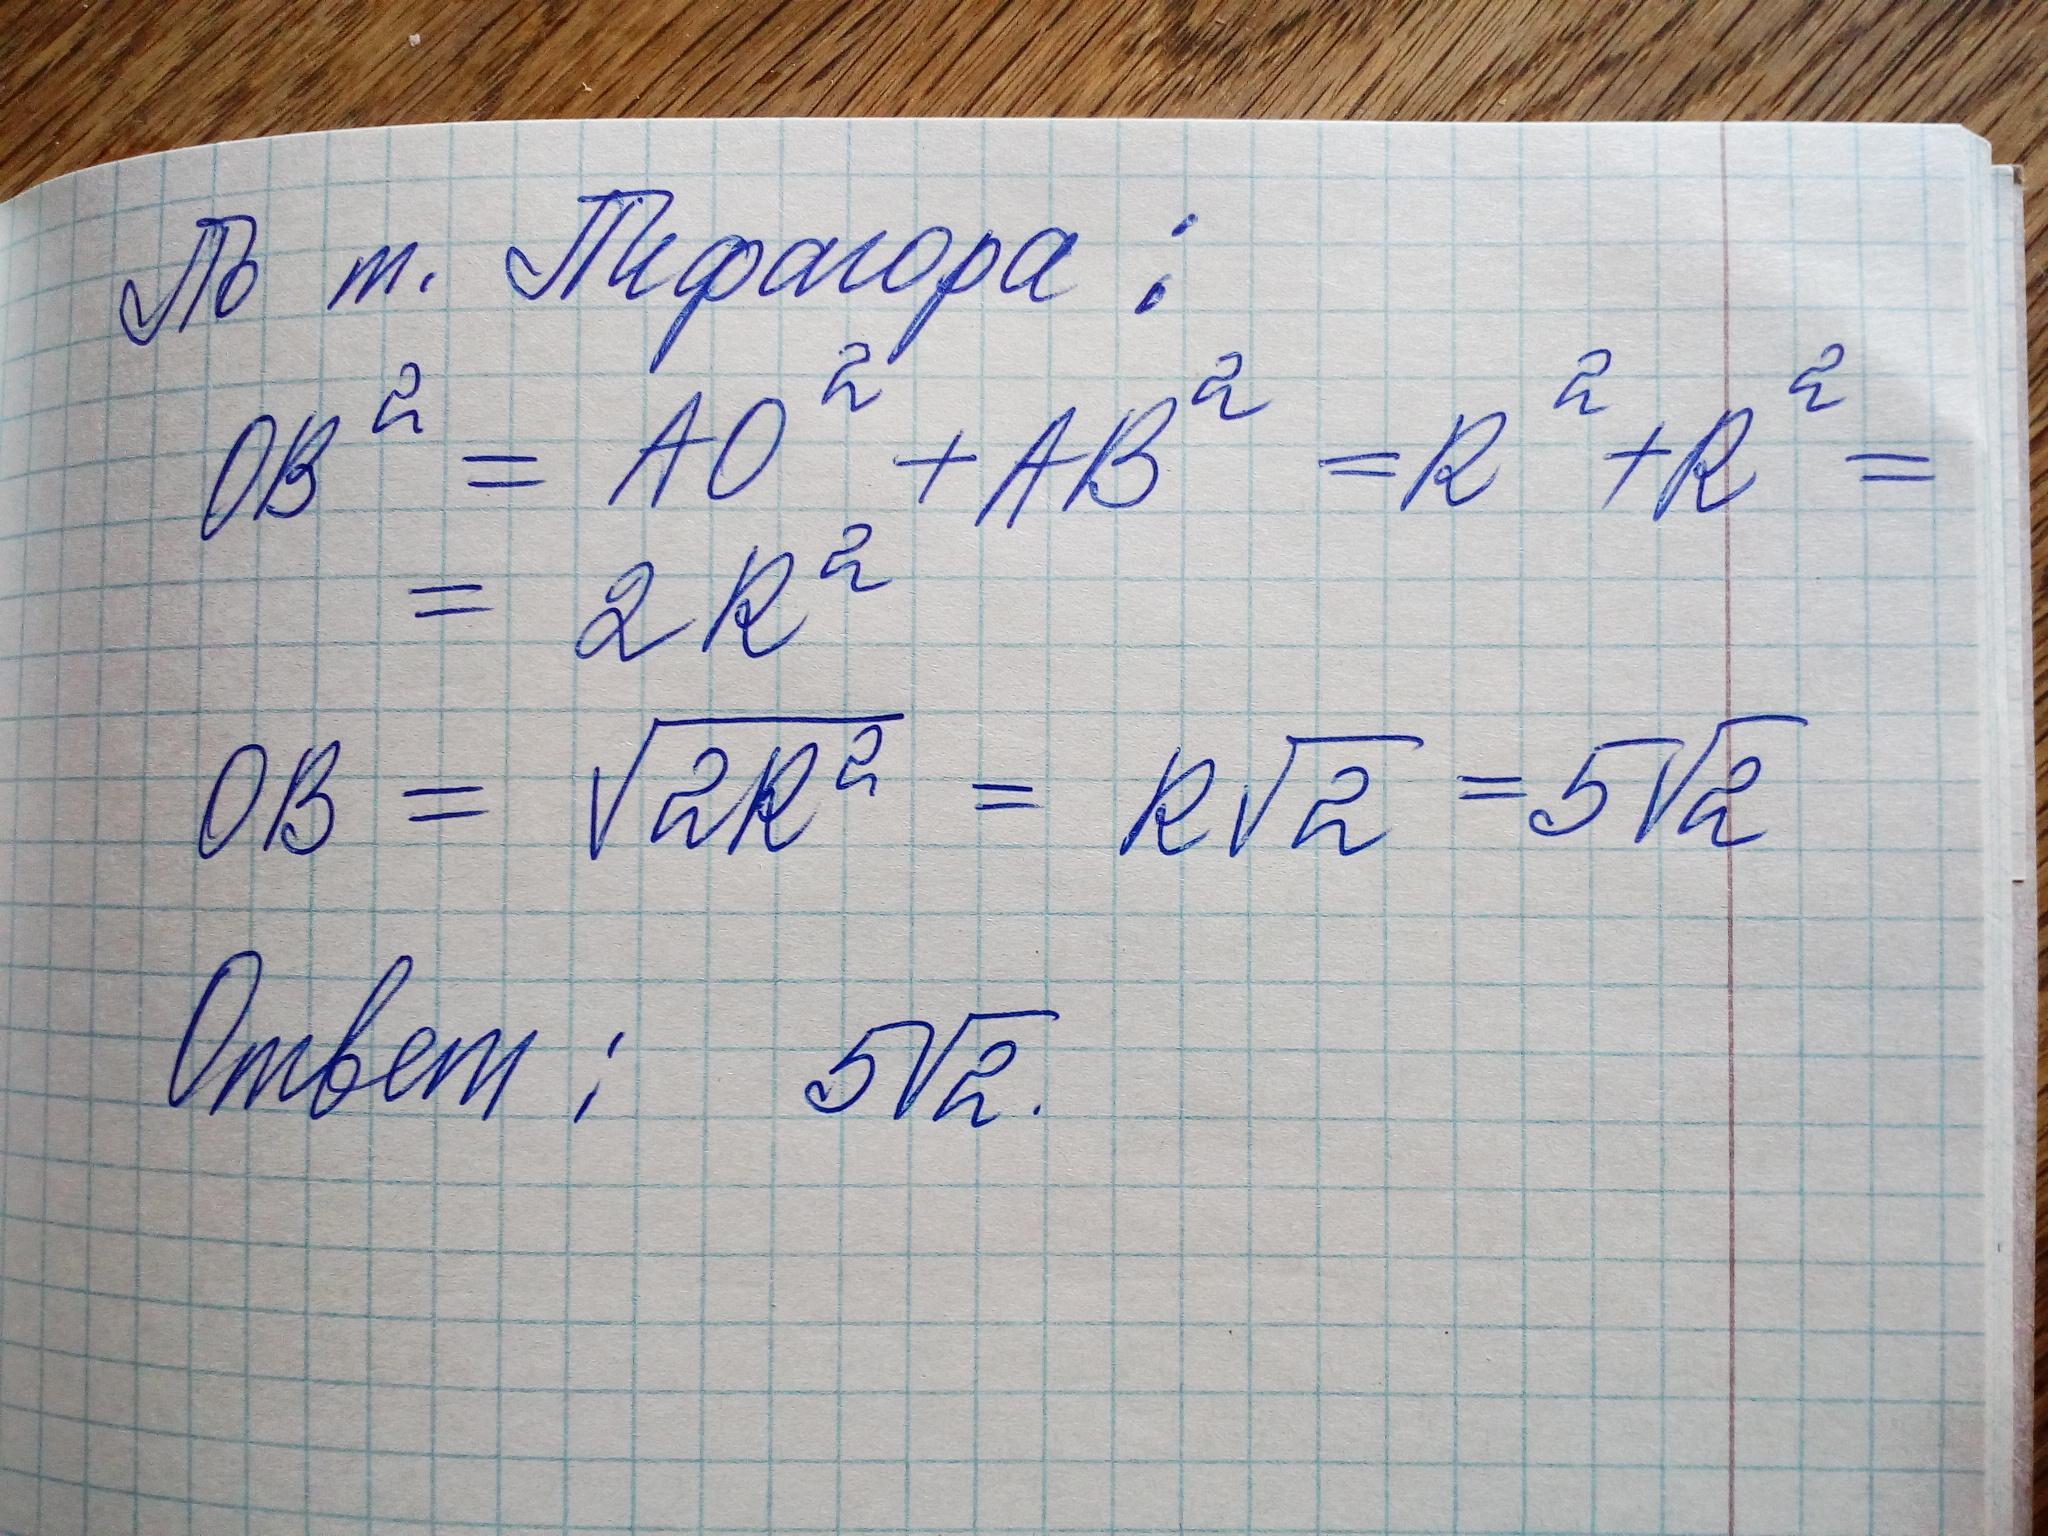 По т. Пифагора:
OB² = AO² + AB² = R² + R² =
= 2R²
OB = √2R² = R√2 = 5√2
Ответ: 5√2.